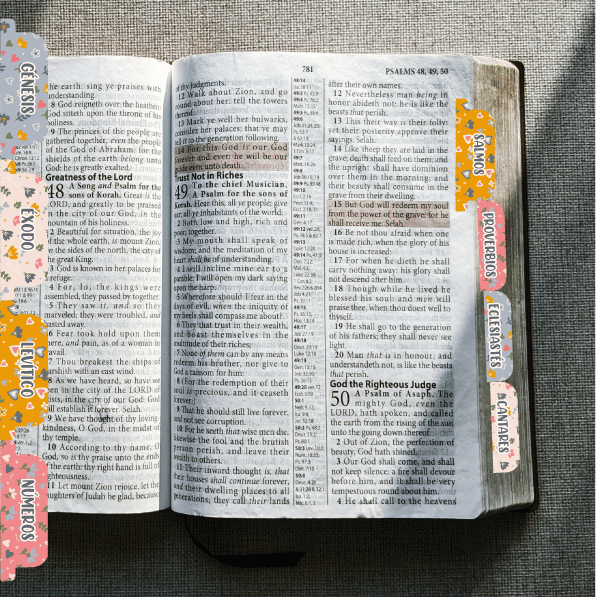 GÉNESIS
ÉXODO
LEVÍTICO
NÚMEROS
the earth: sing ye praises with
understanding.
8 God reigneth over the heathen:
God sitteth upon the throne of
his holiness.
9 The princes of the people are
gathered together, even the people
of the God of Abraham: for the
shields of the earth belong unto
God: he is greatly exalted.
Greatness of the Lord
48 A Song and Psalm for the
sons of Korah. Great is the
LORD, and greatly to be praised
in the city of our God, in the
mountain of his holiness.
2 Beautiful for situation, the joy
of the whole earth, is mount Zion,
on the sides of the north, the city of
the great King.
3 God is known in her palaces for
a refuge.
4 For, lo, the kings were
assembled, they passed by together.
5 They saw it, and so they
marvelled; they were troubled, and
hasted away.
6 Fear took hold upon them
there, and pain, as of a woman in
travail.
7 Thou breakest the ships of
Tarshish with an east wind.
8 As we have heard, so have we
seen in the city of the LORD of
hosts, in the city of our God: God
will establish it for ever. Selah.
9 We have thought of thy loving-
kindness, O God, in the midst of
thy temple.
10 According to thy name, O
God, so is thy praise unto the ends
of the earth: thy right hand is full of
righteousness.
11 Let mount Zion rejoice, let the
daughters of Judah be glad, because
781
PSALMS 48, 49, 50
of thy judgments.
12 Walk about Zion, and go
round about her: tell the towers
thereof.
13 Mark ye well her bulwarks,
consider her palaces; that ye may
tell it to the generation following.
14 For this God is our God
for ever and ever: he will be our
guide even unto death.
Trust Not in Riches
49 To the chief Musician,
A Psalm for the sons of
Korah. Hear this, all ye people; give
ear, all ye inhabitants of the world:
2 Both low and high, rich and
poor, together.
3 My mouth shall speak of
wisdom; and the meditation of my
heart shall be of understanding.
4 I will incline mine ear to a
parable: I will open my dark saying
upon the harp.
5 Wherefore should I fear in the
days of evil, when the iniquity of
my heels shall compass me about?
6 They that trust in their wealth,
and boast themselves in the
multitude of their riches;
7 None of them can by any means
redeem his brother, nor give to
God a ransom for him:
8 (For the redemption of their
soul is precious, and it ceaseth
for ever:)
9 That he should still live for ever,
and not see corruption.
10 For he seeth that wise men die,
likewise the fool and the brutish
person perish, and leave their
wealth to others.
11 Their inward thought is, that
their houses shall continue for ever,
and their dwelling places to all
generations; they call their lands
after their own names.
12 Nevertheless man being in
honour abideth not: he is like the
beasts that perish.
13 This their way is their folly:
yet their posterity approve their
sayings. Selah.
14 Like sheep they are laid in the
grave; death shall feed on them; and
the upright shall have dominion
over them in the morning; and
their beauty shall consume in the
grave from their dwelling.
15 But God will redeem my soul
from the power of the grave: for he
shall receive me. Selah.
16 Be not thou afraid when one
is made rich, when the glory of his
house is increased;
17 For when he dieth he shall
carry nothing away: his glory shall
not descend after him.
18 Though while he lived he
blessed his soul: and men will
praise thee, when thou doest well to
thyself.
19 He shall go to the generation
of his fathers; they shall never see
light.
20 Man that is in honour, and
understandeth not, is like the beasts
that perish.
God the Righteous Judge
50 A Psalm of Asaph. The
mighty God, even the
LORD, hath spoken, and called
the earth from the rising of the sun
unto the going down thereof.
2 Out of Zion, the perfection of
beauty, God hath shined.
3 Our God shall come, and shall
not keep silence: a fire shall devour
before him, and it shall be very
tempestuous round about him.
4 He shall call to the heavens
SALMOS
PROVERBIOS
ECLESIASTÉS
CANTARES